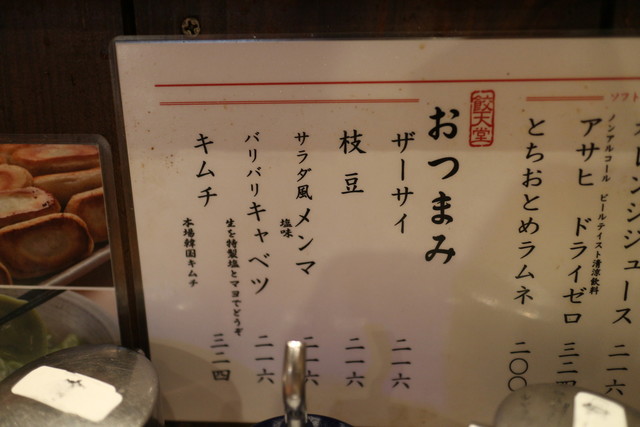 ソフト
ンジュース
二一六
ノンアルコール ビールテイスト清涼飲料
アサヒ ドライゼロ
三二四
とちおとめラムネ
二〇〇
餃天堂
おつまみ
ザーサイ
二一六
枝豆
二一六
サラダ風メンマ
塩味
二一六
バリバリキャベツ
生を特製塩とマヨでどうぞ
二一六
キムチ
本場韓国キムチ
三二四